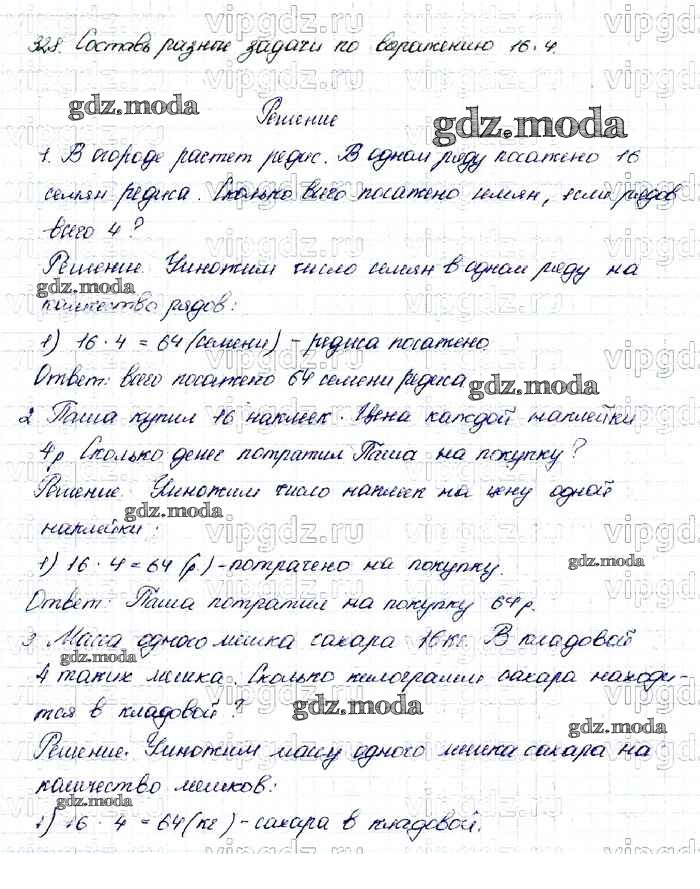 328. Составь разные задачи по выражению 16·4.
Решение
1. В огороде растет редис. В одном ряду посажено 16
семян редиса. Сколько всего посажено семян, если рядов
всего 4?
Решение. Умножим число семян в одном ряду на
количество рядов:
1) 16·4=64 (семени) - редиса посажено.
Ответ: всего посажено 64 семени редиса
2 Паша купил 16 наклеек. Цена каждой наклейки
4р. Сколько денег потратил Паша на покупку?
Решение. Умножим число наклеек на цену одной
наклейки:
1) 16·4=64 (р.) - потрачено на покупку.
Ответ: Паша потратил на покупку 64р.
3. Масса одного мешка сахара 16кг. В кладовой
4 таких мешка. Сколько килограмм сахара находи-
тся в кладовой?
Решение. Умножим массу одного мешка сахара на
количество мешков:
1) 16·4=64 (кг) - сахара в кладовой.
gdz.moda
gdz.moda
gdz.moda
gdz.moda
gdz.moda
gdz.moda
gdz.moda
gdz.moda
gdz.moda
gdz.moda
vipgdz.ru